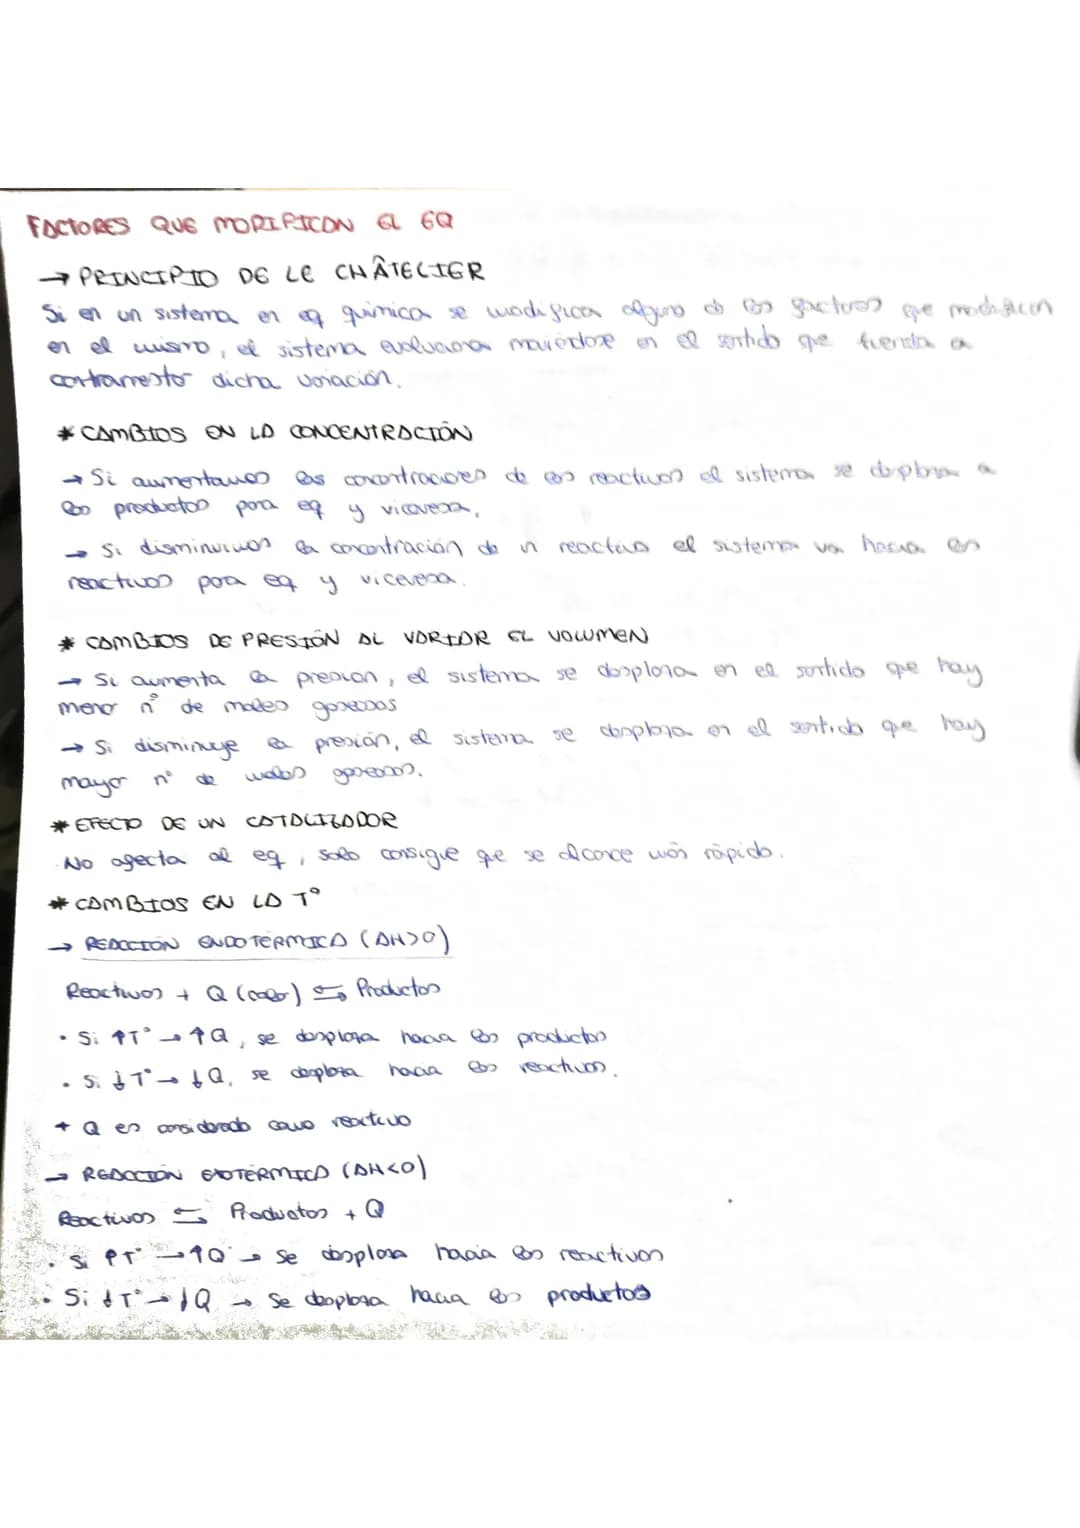 FACTORES QUE MODIFICAN EL EQ
→ PRINCIPIO DE LE CHÂTELIER
Si en un sistema en eq química se modifica alguno de los factores que modifican
en el mismo, el sistema evoluciona moviéndose en el sentido que tienda a
contrarrestar dicha variación.
* CAMBIOS EN LA CONCENTRACIÓN
→ Si aumentamos las concentraciones de los reactivos el sistema se desplaza a
los productos para eq y viceversa.
→ Si disminuimos la concentración de un reactivo el sistema va hacia los
reactivos para eq y viceversa.
* CAMBIOS DE PRESIÓN AL VARIAR EL VOLUMEN
→ Si aumenta la presión, el sistema se desplaza en el sentido que hay
menor nº de moles gaseosos
→ Si disminuye la presión, el sistema se desplaza en el sentido que hay
mayor nº de moles gaseosos.
* EFECTO DE UN CATALIZADOR
No afecta al eq, solo consigue que se alcance más rápido.
* CAMBIOS EN LA Tº
→ REACCIÓN ENDOTÉRMICA (ΔH>0)
Reactivos + Q (calor) ⇆ Productos
· Si ↑Tº → ↑Q, se desplaza hacia los productos
· Si ↓Tº → ↓Q, se desplaza hacia los reactivos.
+ Q es considerado como reactivo
→ REACCIÓN EXOTÉRMICA (ΔH<0)
Reactivos ⇆ Productos + Q
· Si ↑Tº → ↑Q → Se desplaza hacia los reactivos
· Si ↓Tº → ↓Q → Se desplaza hacia los productos